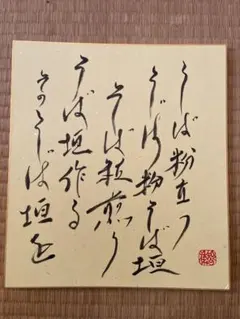 そば粉立つ
そば粉そば垣
そば粒煎り
そば垣作る
そのそば垣を